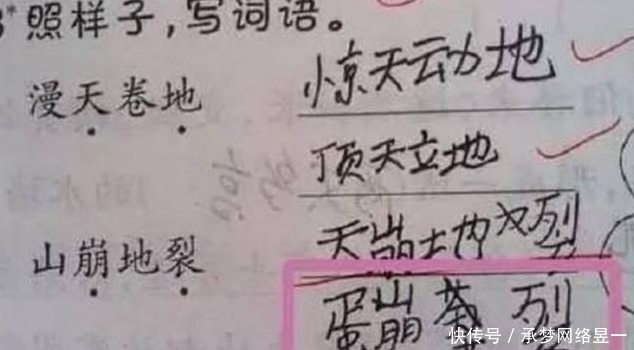 照样子，写词语。
漫天卷地 惊天动地
顶天立地
山崩地裂 天崩地裂
蛋崩
快传号／承梦网络昱一